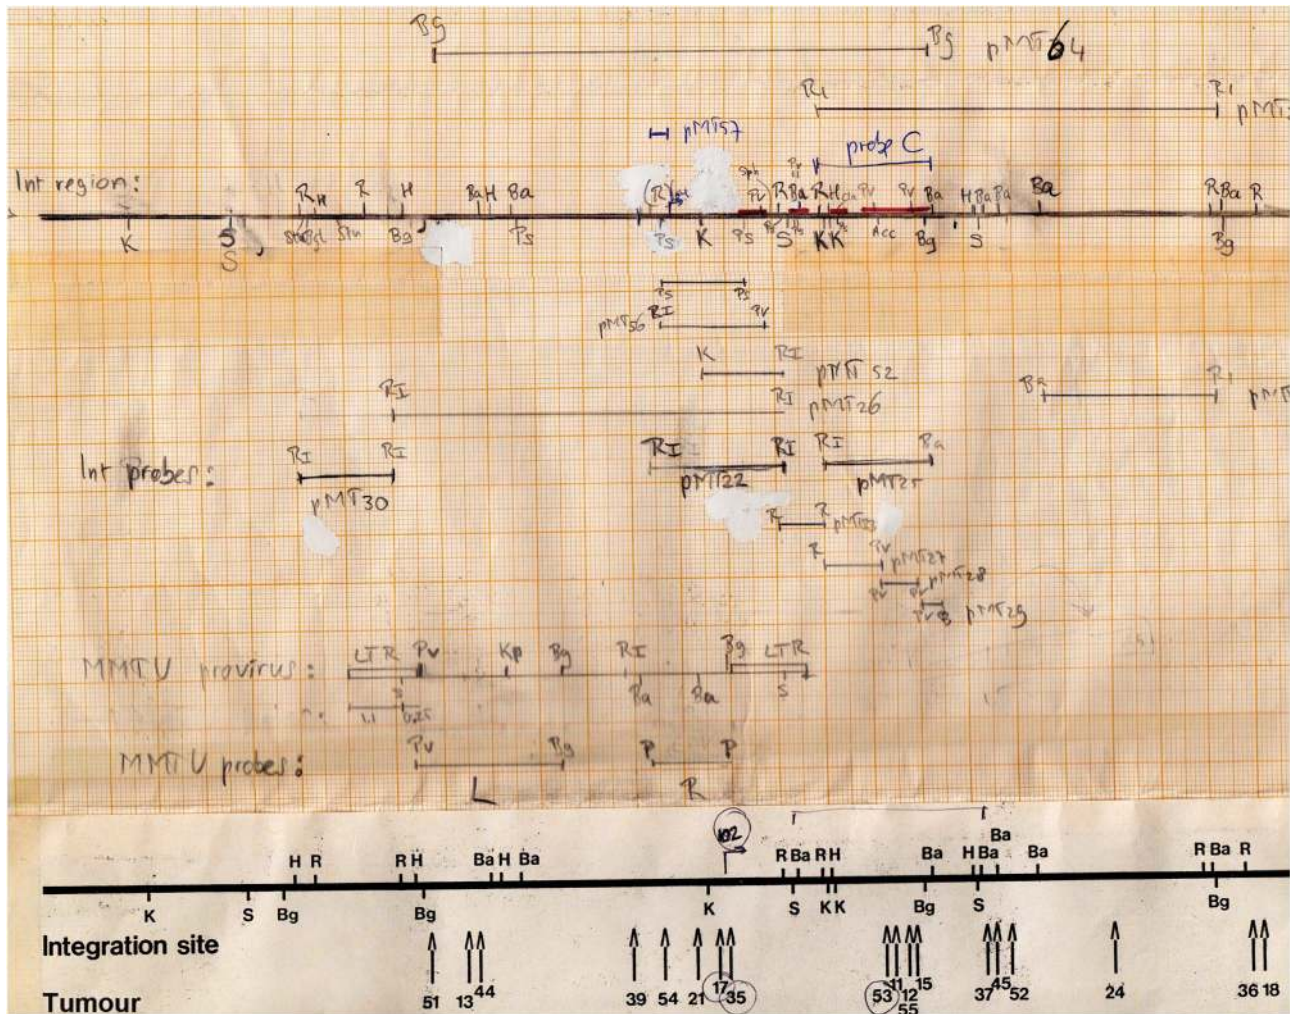 Bg Bg pMT64
R1 R1
pMT57 probe C
Int region: R H R H Ba H Ba (R) R Ba R H Pv Pv Ba H Ba Ba Ba R Ba R
K S Bg Ps Ps K Ps S K K Acc Bg S Bg
S
Ps Ps
pMT56 RI Pv
K RI pMT52
RI RI pMT26 Ba R1
Int probes: RI RI RI RI RI Ba
pMT30 pMT22 pMT25
R R pMT33
R Pv pMT27
Pv Pv pMT28
Pv B pMT29
MMTV provirus: LTR Pv Kp Bg RI Bg LTR
S Ba Ba S
1.1 0.25
MMTV probes: Pv Bg P P
L R
102
H R R H Ba H Ba R Ba R H Ba H Ba Ba Ba R Ba R
K S Bg Bg K S K K Bg S Bg
Integration site
Tumour 51 13 44 39 54 21 17 35 53 11 12 55 15 37 45 52 24 36 18